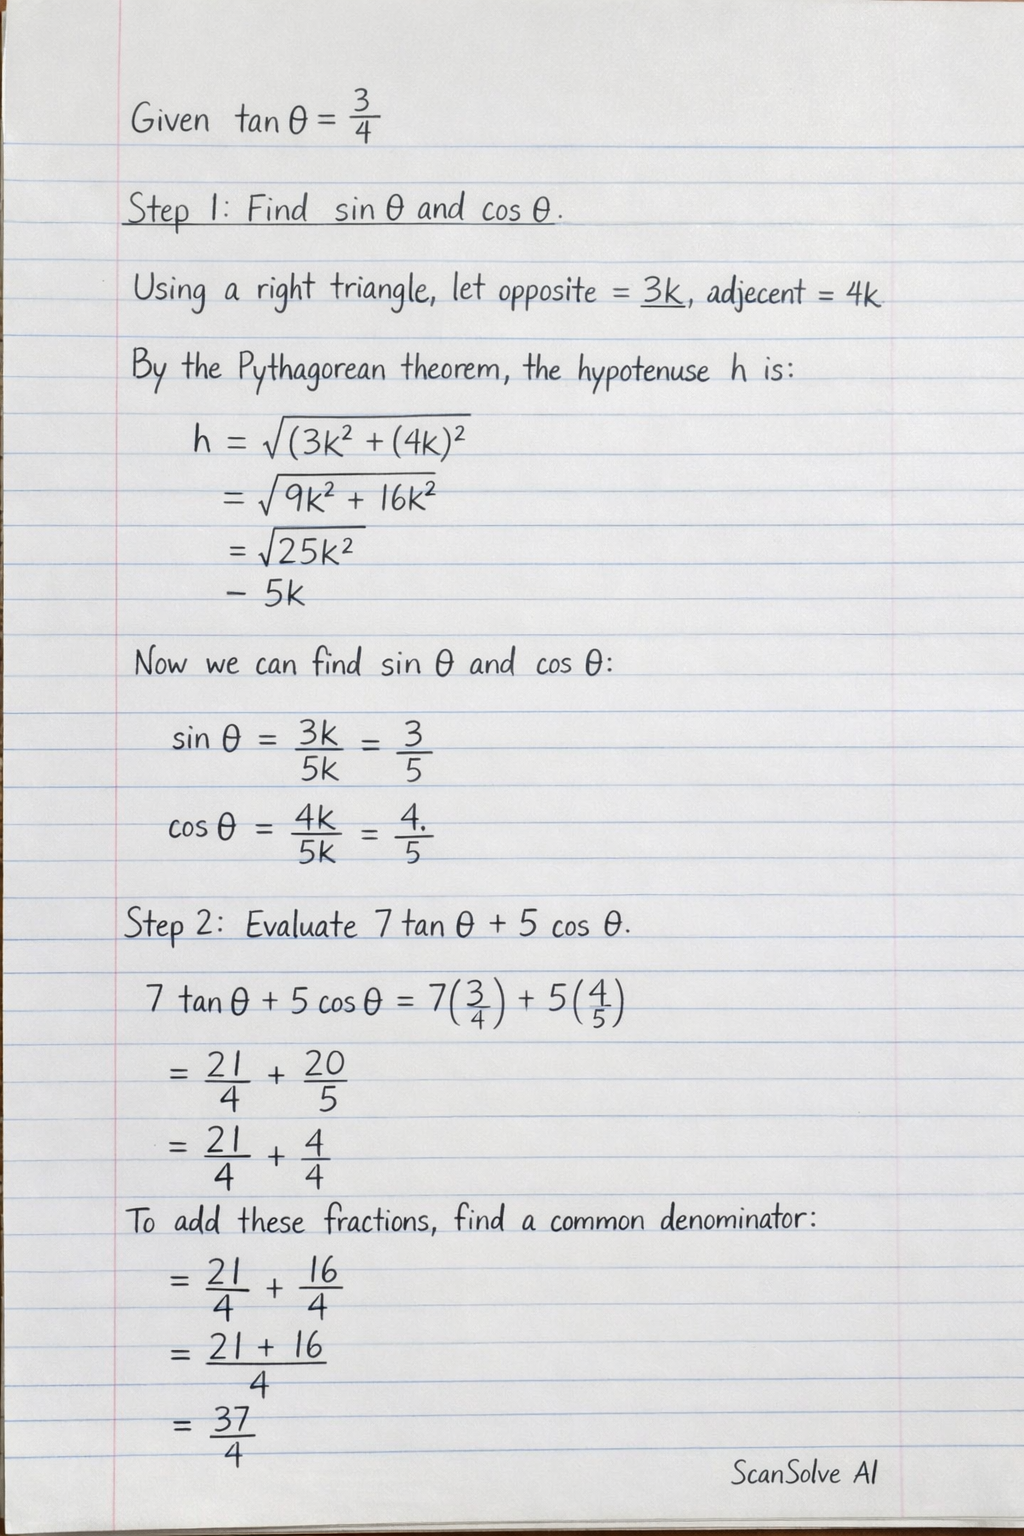 Given tan θ = 3/4
Step 1: Find sin θ and cos θ.
Using a right triangle, let opposite = 3k, adjecent = 4k
By the Pythagorean theorem, the hypotenuse h is:
h = √(3k² + (4k)²
= √9k² + 16k²
= √25k²
− 5k
Now we can find sin θ and cos θ:
sin θ = 3k/5k = 3/5
cos θ = 4k/5k = 4./5
Step 2: Evaluate 7 tan θ + 5 cos θ.
7 tan θ + 5 cos θ = 7(3/4) + 5(4/5)
= 21/4 + 20/5
= 21/4 + 4/4
To add these fractions, find a common denominator:
= 21/4 + 16/4
= 21 + 16/4
= 37/4
ScanSolve AI